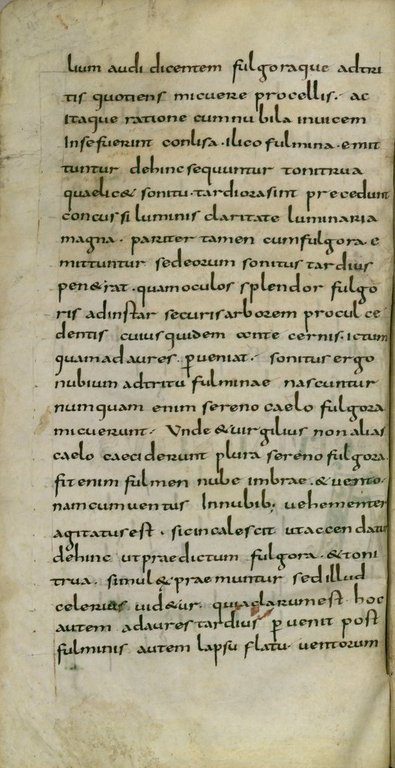 lium audi dicentem fulgoraque adtri
tis quotiens micuere procellis. ac
itaque ratione cum nubila invicem
inse fuerint conlisa. ilico fulmina. emit
tuntur dehinc sequuntur tonitrua
quae lic& sonitu. tardiora sint precedunt
concussi luminis claritate luminaria
magna. pariter tamen cum fulgora. e
mittuntur sed eorum sonitus tardius
pen&rat. quam oculos splendor fulgo
ris ad instar securis arborem procul ce
dentis cuius quidem ante cernis. ictum
quam ad aures. ꝑveniat. sonitus ergo
nubium adtritu fulminae nascuntur
numquam enim sereno caelo fulgora
micuerunt. Unde & virgilius non alias
caelo caeciderunt plura sereno fulgora.
fit enim fulmen nube imbrae. & vento.
nam cum ventus in nubib; vehementer
agitatus est. sic incalescit ut accendatur
dehinc ut praedictum fulgora. & toni
trua. simul & praemuntur sed illud
celerius vid&ur. quia clarum est. hoc
autem ad aures tardius ꝑvenit post
fulminis autem lapsu flatu. ventorum